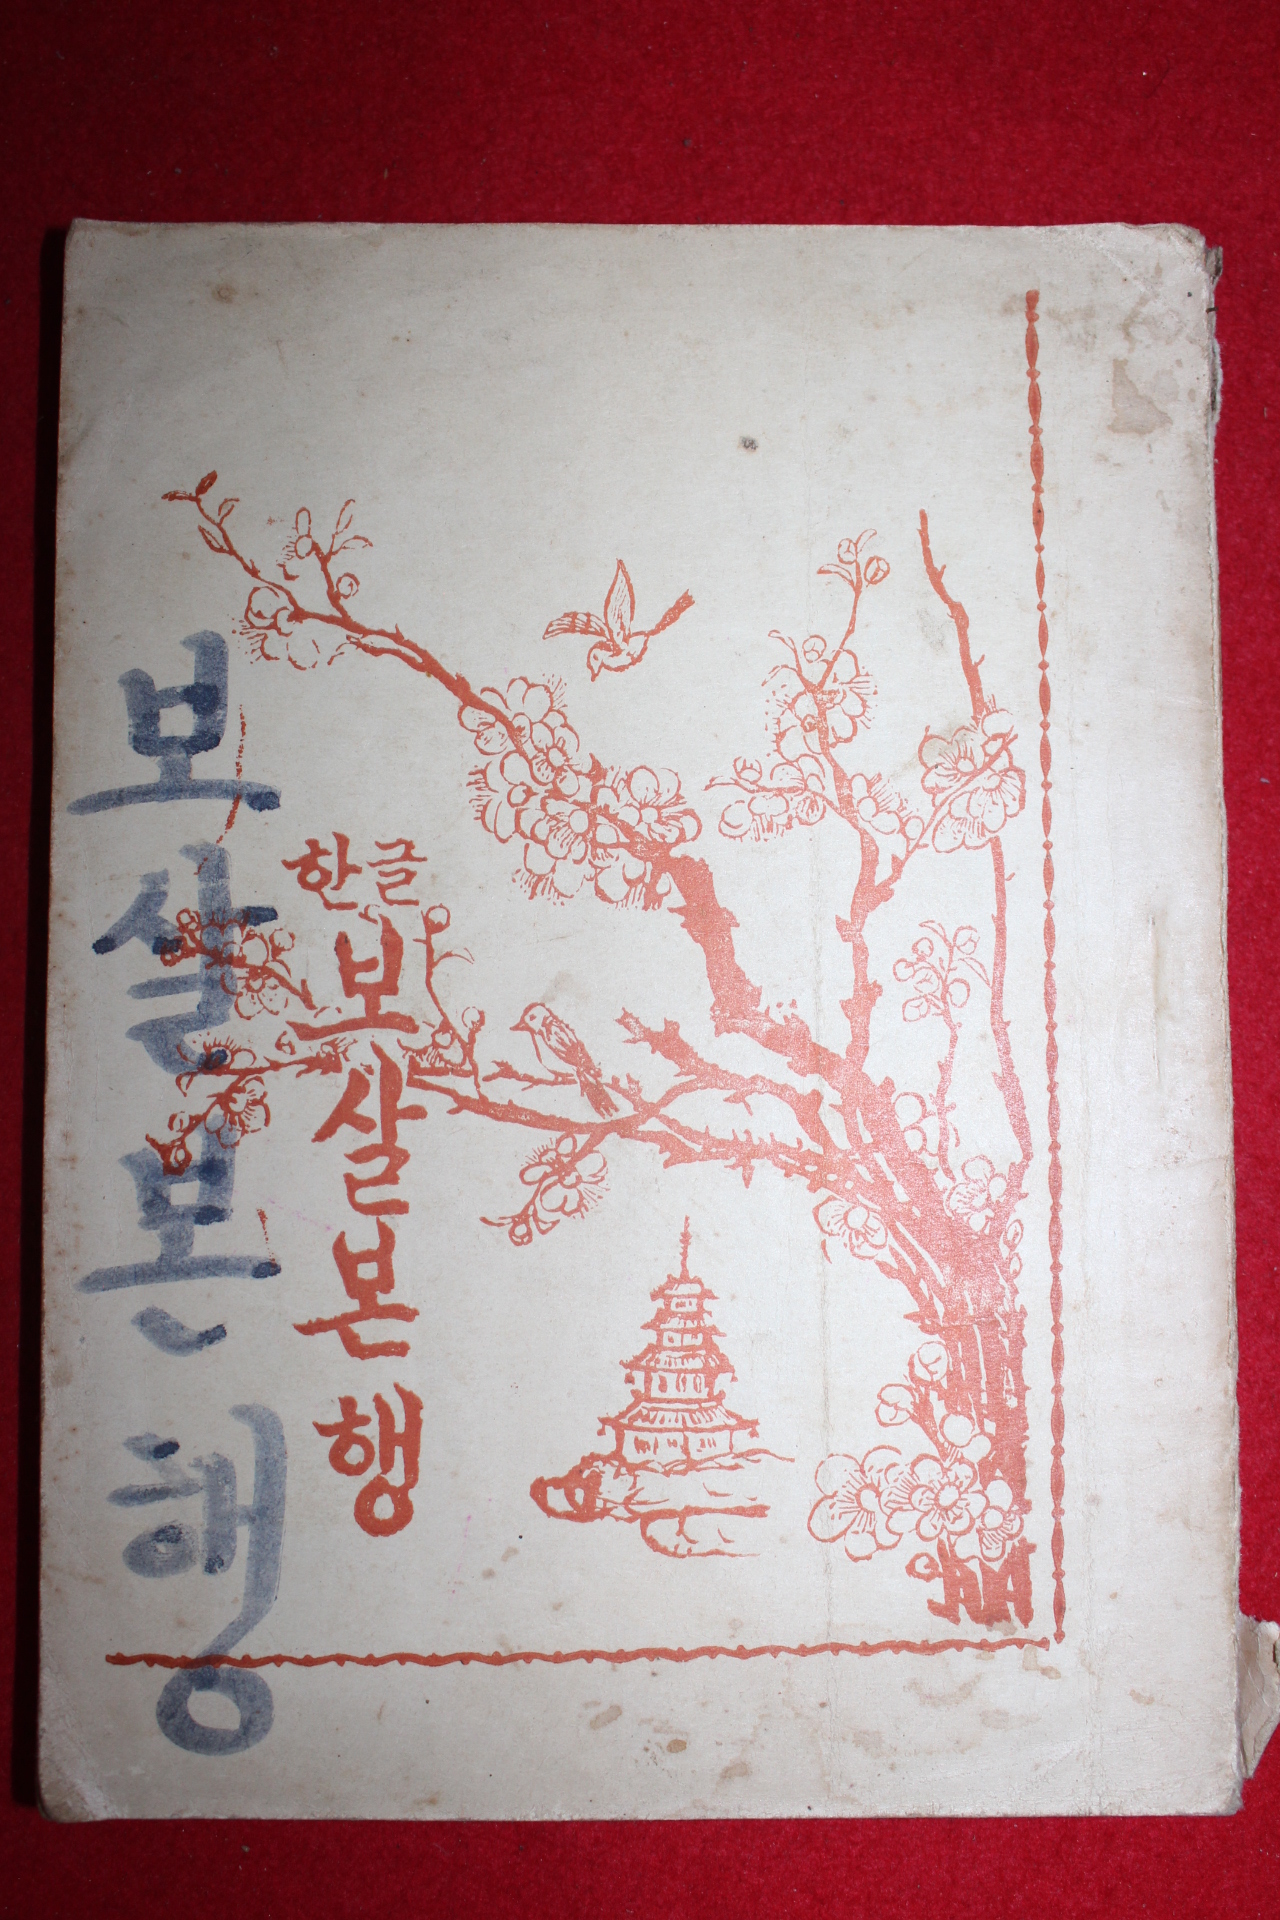 한글
보살본행
보살본행